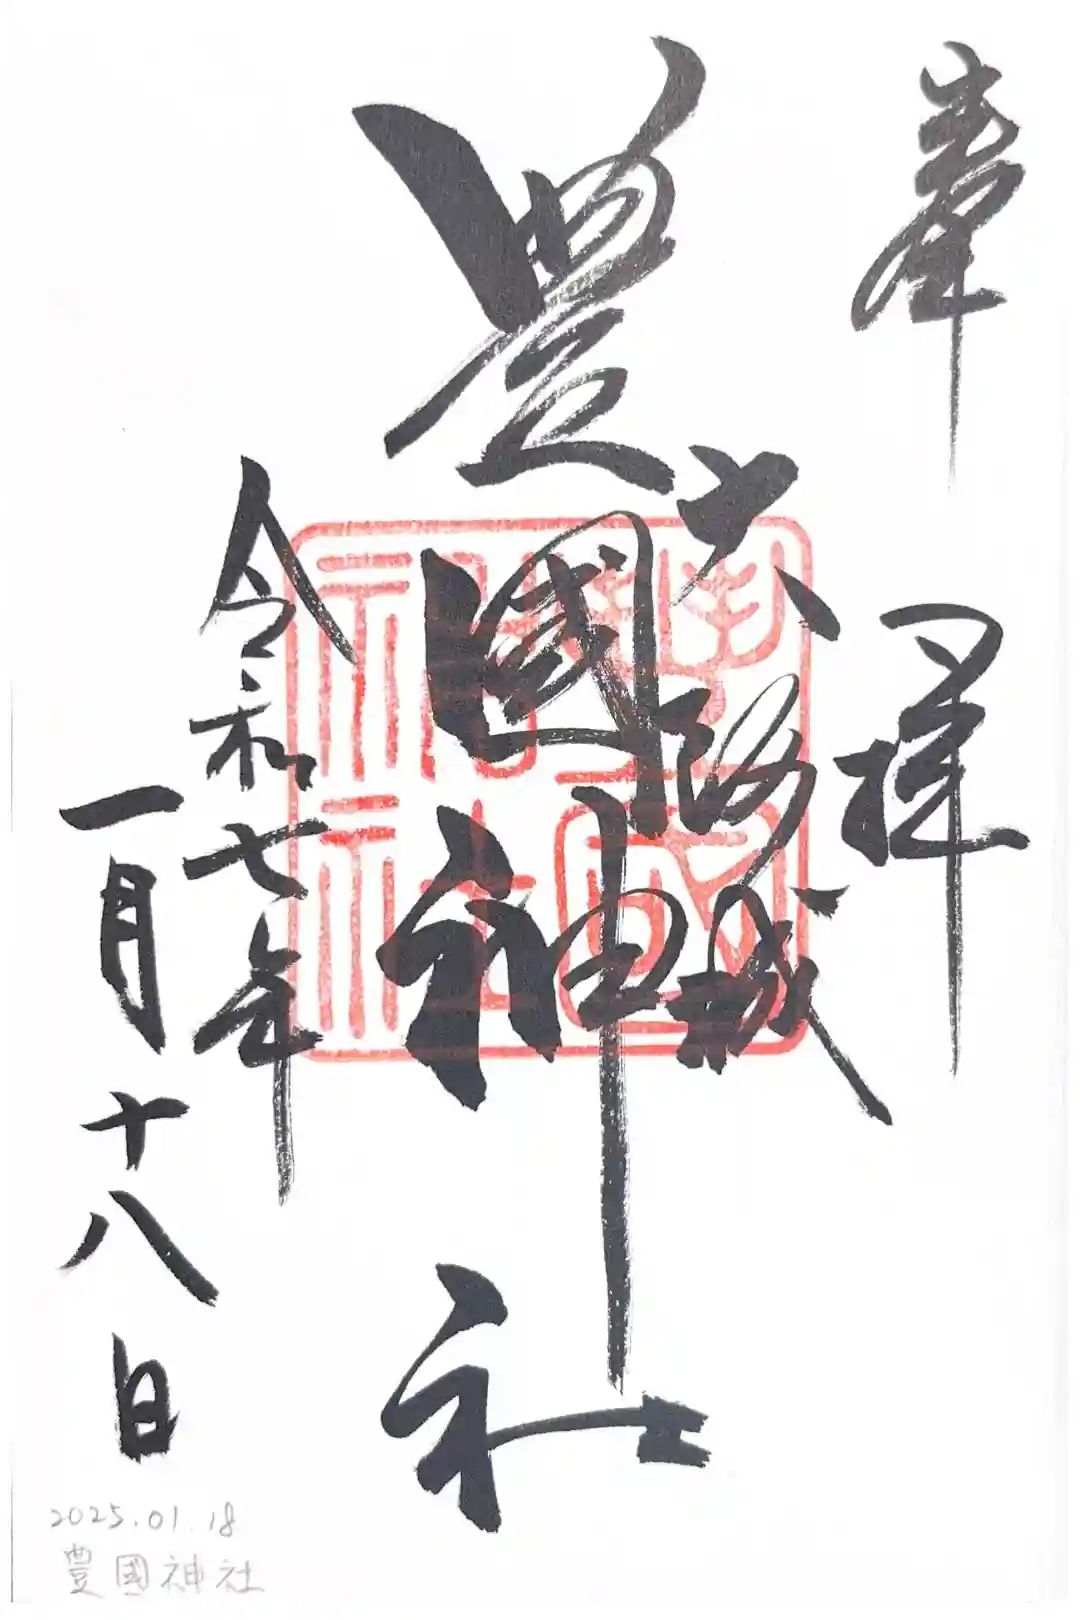 奉拝
大阪城
豊國神社
豐國神社
令和七年
一月十八日
2025.01.18
豊國神社